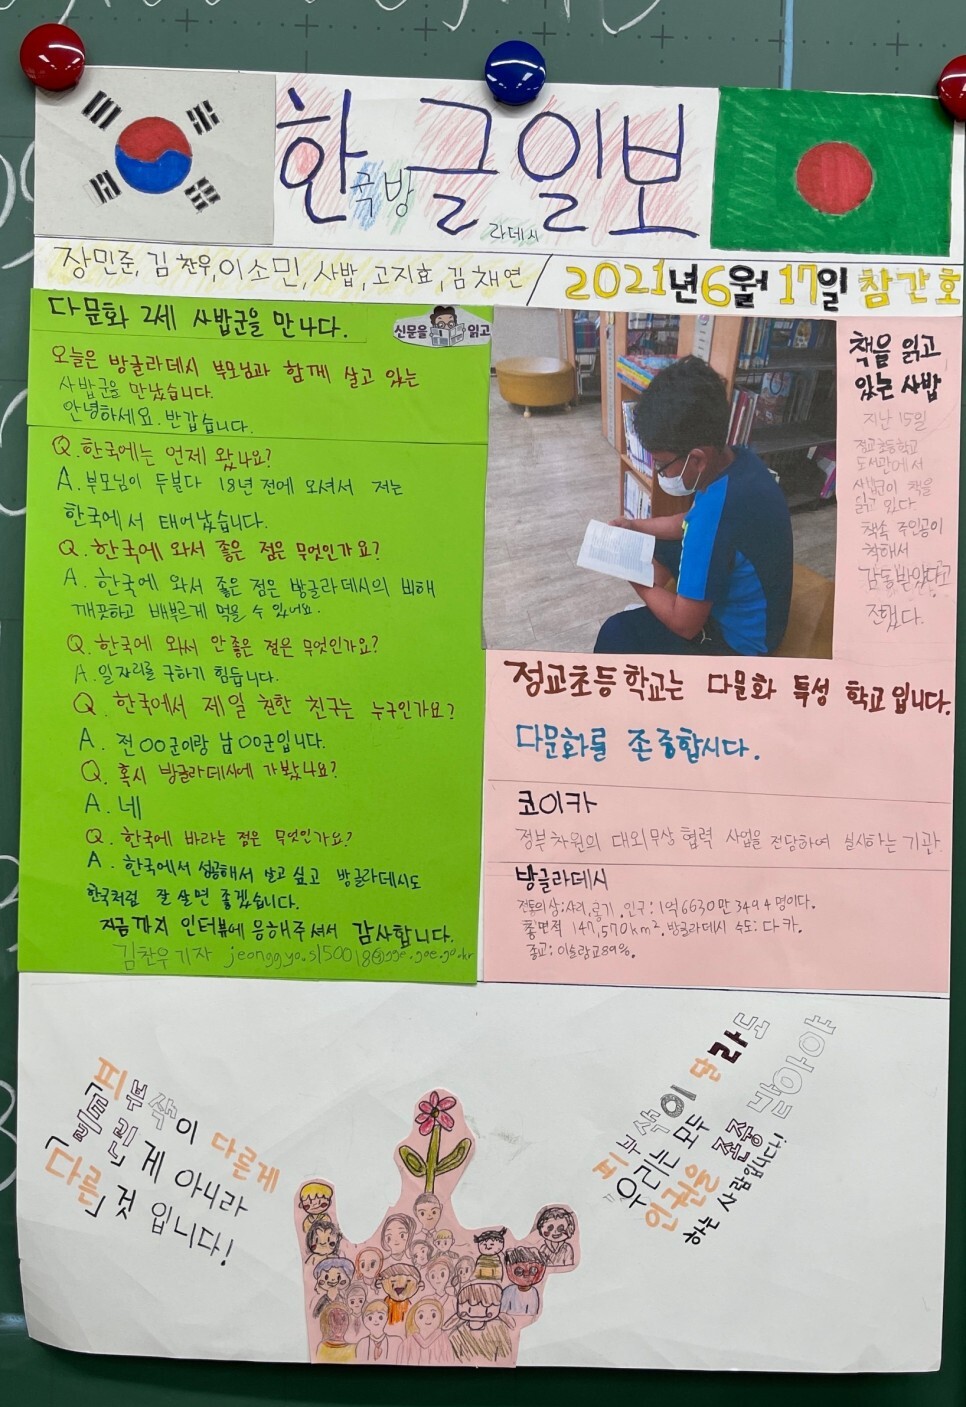 한글일보
국방
라데시
장민준, 김찬우, 이소민, 사밥, 고지효, 김채연 / 2021년 6월 17일 참간호
다문화 2세 사밥군을 만나다.
신문을 읽고
오늘은 방글라데시 부모님과 함께 살고 있는
사밥군을 만났습니다.
안녕하세요. 반갑습니다.
Q. 한국에는 언제 왔나요?
A. 부모님이 두분다 18년 전에 오셔서 저는
한국에서 태어났습니다.
Q. 한국에 와서 좋은 점은 무엇인가요?
A. 한국에 와서 좋은 점은 방글라데시의 비해
깨끗하고 배부르게 먹을 수 있어요.
Q. 한국에 와서 안좋은 점은 무엇인가요?
A. 일자리를 구하기 힘듭니다.
Q. 한국에서 제일 친한 친구는 누구인가요?
A. 전OO군이랑 남OO군입니다.
Q. 혹시 방글라데시에 가봤나요?
A. 네
Q. 한국에 바라는 점은 무엇인가요?
A. 한국에서 성공해서 살고 싶고 방글라데시도
한국처럼 잘 살면 좋겠습니다.
지금까지 인터뷰에 응해주셔서 감사합니다.
김찬우기자
책을 읽고
있는 사밥
지난 15일
정교초등학교
도서관에서
사밥군이 책을
읽고 있다.
책속 주인공이
착해서
감동받았다고
전했다.
정교초등학교는 다문화 특성 학교입니다.
다문화를 존중합시다.
코이카
정부차원의 대외무상 협력 사업을 전담하여 실시하는 기관.
방글라데시
전통의상:사리,룽기. 인구:1억6630만 3494명이다.
총면적 147,570km². 방글라데시 수도: 다카.
종교: 이슬람교89%.
피부색이 다른게
「틀린」게 아니라
「다른」것 입니다!
피부색이 달라도
우리는 모두 존중 받아야
하는 사람입니다!